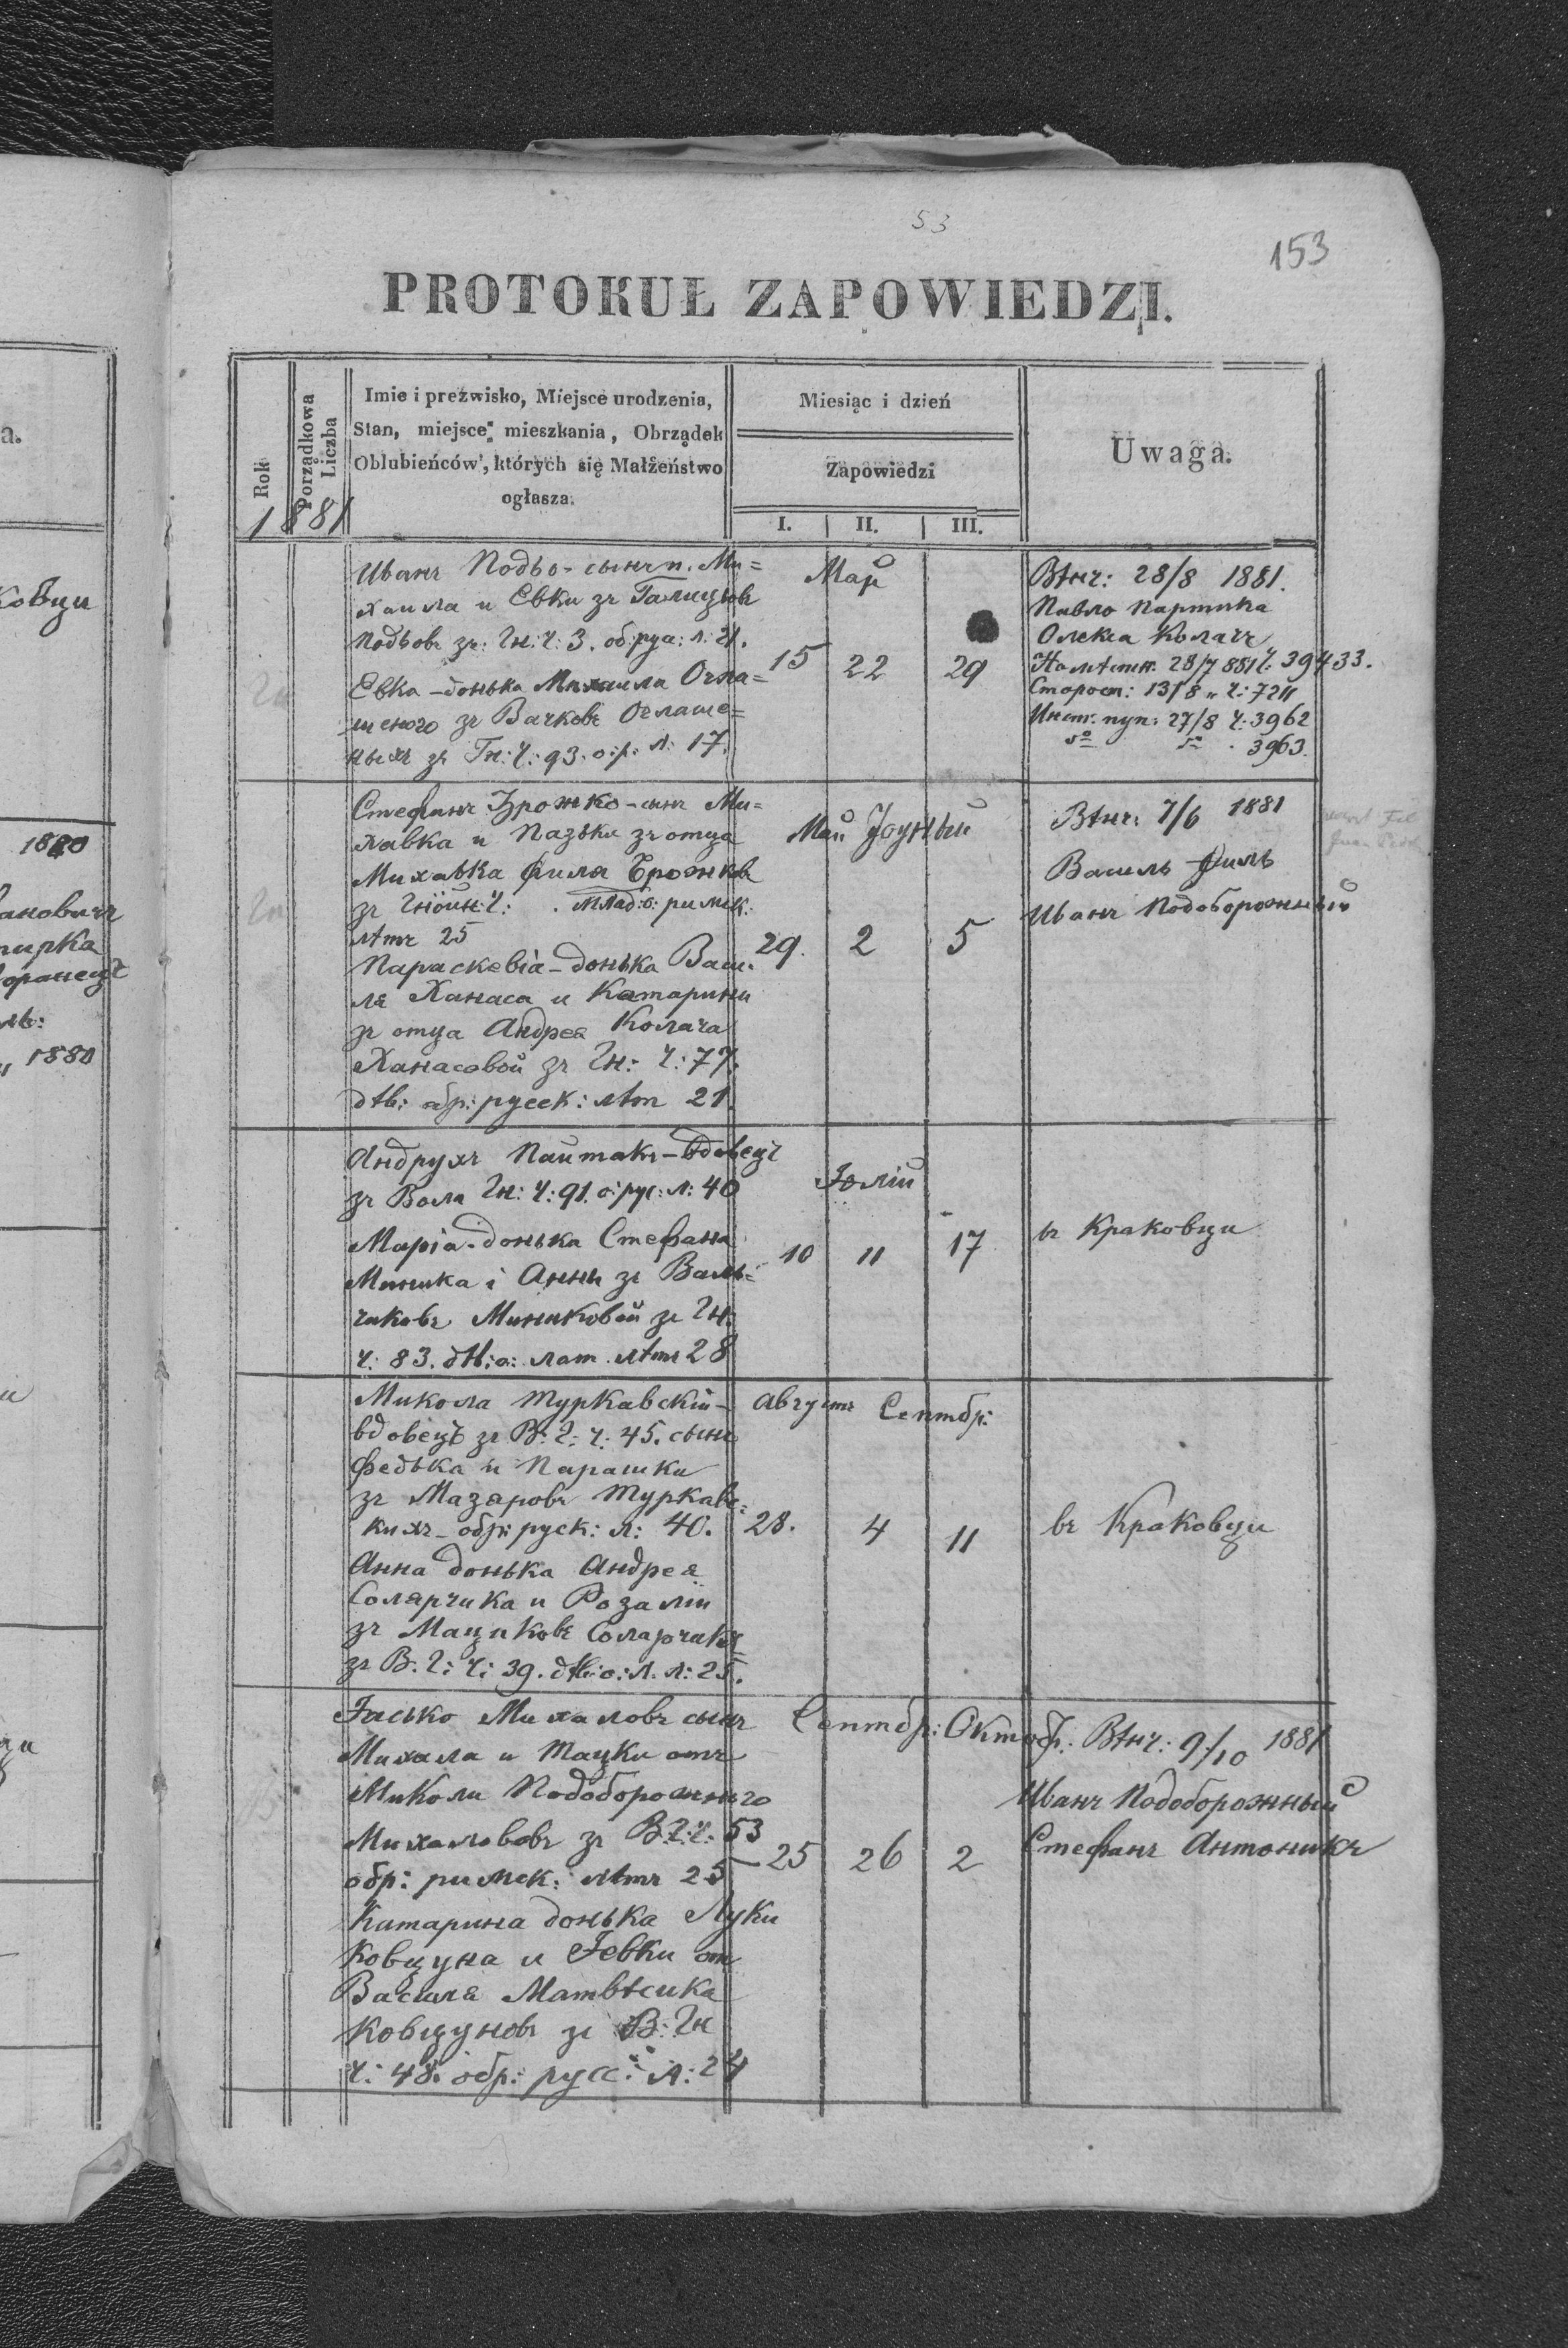 53
153
PROTOKUŁ ZAPOWIEDZI.
Rok
Porządkowa Liczba
Imie i preźwisko, Miejsce urodzenia,
Stan, miejsce mieszkania, Obrządek
Oblubieńców, których się Małżeństwo
ogłasza.
Miesiąc i dzień
Zapowiedzi
I. II. III.
Uwaga.
1881
Иванъ Подьо - сынъ п. Ми=
хаила и Евки зъ Галицювъ
Подьовъ зъ: Гн: Ч: 3. об: рус: л: 21.
Евка - донька Михаила Огла=
шеного зъ Вачковъ Оглаше=
ныхъ зъ Гн: Ч: 93. о: р: л: 17.
Май
15 22 29
Вѣнч: 28/8 1881.
Павло Партика
Олекса Колачъ
Намѣстн. 28/7 881 Ч. 39433.
Старост: 13/8 " Ч: 7211
Инст. пуп: 27/8 Ч: 3962
3963.
Стефанъ Брожко - сынъ Ми=
хавка и Пазьки зъ отца
Михавка Филя Брожковъ
зъ Гнойн: Ч: . млад: о: римск:
лѣтъ 25
Параскевіа - донька Васи=
ля Ханаса и Катарини
зъ отца Андрея Колача
Ханасовой зъ Гн: Ч: 77.
дѣв: обр: русск: лѣт 21.
Май Іоуный
29. 2 5
Вѣнч: 7/6 1881
Василь Филь
Иванъ Подоборожный
Андрухъ Пайтакъ - Вдовецъ
зъ Вола Гн: Ч: 91. о: рус: л: 40
Маріа - донька Стефана
Миника і Анны зъ Валь=
чиковъ Миниковой зъ Гн:
Ч: 83. дѣв: о: лат. лѣтъ 28
Іюлій
10 11 17
въ Краковци
Микола Туркавскій -
вдовецъ зъ В: Г: Ч: 45. сынъ
Федька и Парашки
зъ Мазяровъ Туркавс=
кихъ - обр: руск: л: 40.
Анна донька Андрея
Солярчика и Розаліи
зъ Мациковъ Солярчикъ
зъ В: Г: Ч: 39. дѣв: о: л. л: 25.
Августъ Септбр:
28. 4 11
въ Краковци
Іасько Михаловъ сынъ
Михала и Тацки отъ
Миколи Подоборожного
Михаловвъ зъ В: Г: Ч: 53
обр: римск: лѣтъ 25
Катарина донька Луки
Ковцуна и Іевки от
Василя Матвѣсика
Ковцуновъ зъ В: Гн
Ч: 48. обр: русс: л: 24
Септбр: Октобр:
25 26 2
Вѣнч: 9/10 1881
Иванъ Подоборожный
Стефанъ Антоникъ